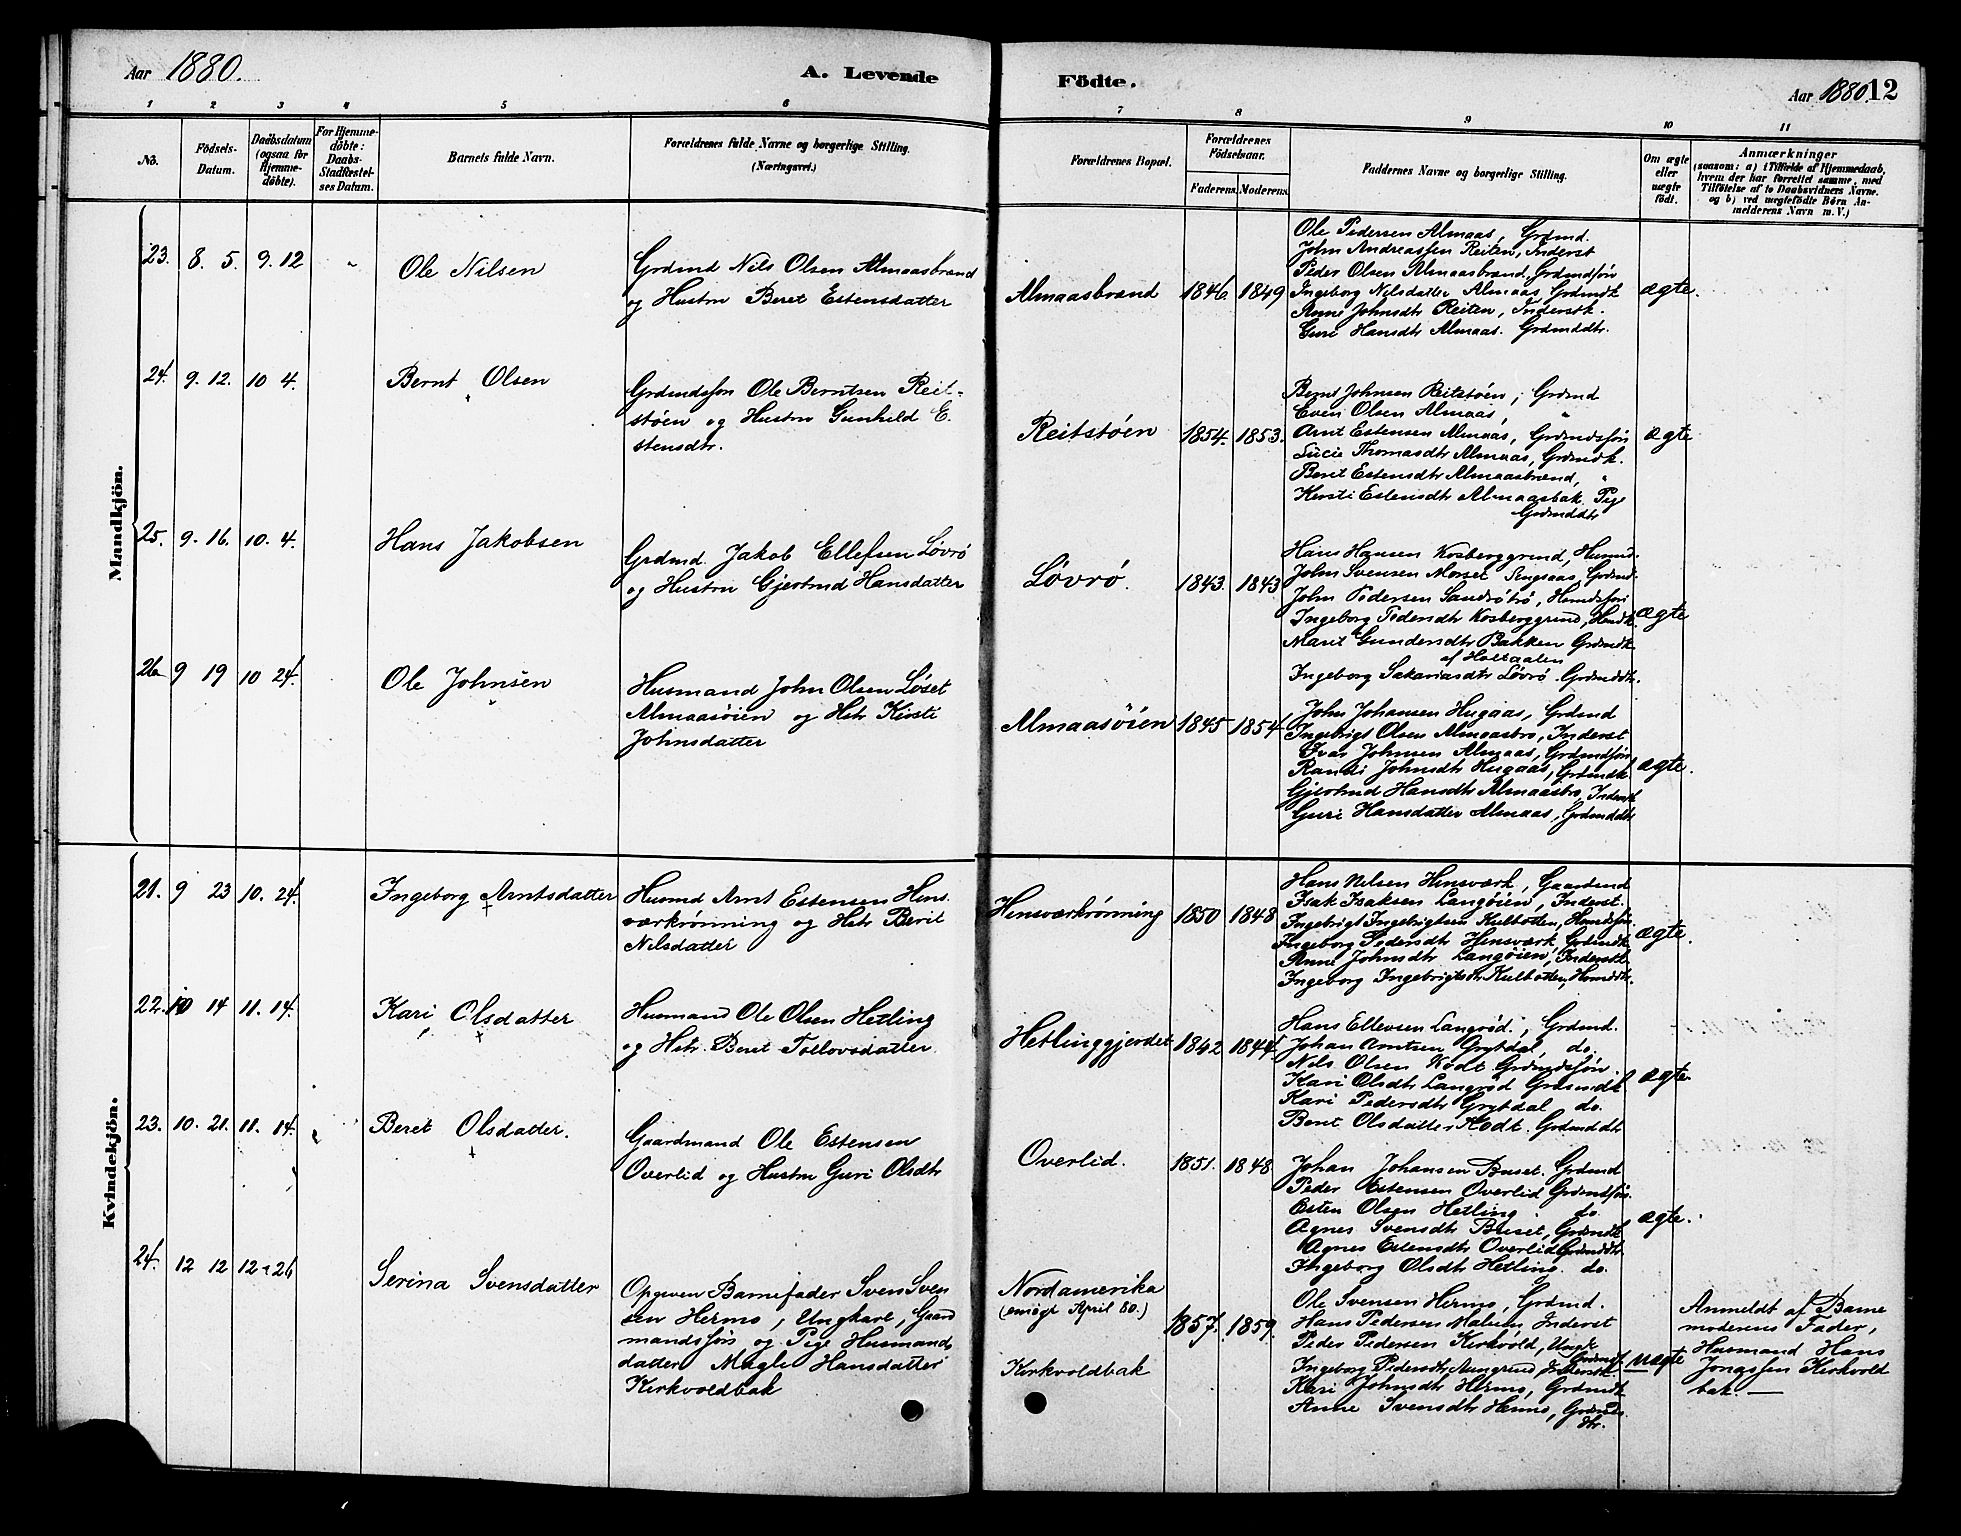 Aar 1880.
A. Levende
Födte.
Aar 1880. 12
1 2 3 4 5 6 7 8 9 10 11
No.
Födsels-
Datum.
Daabsdatum
(ogsaa for
Hjemme-
døbte).
For Hjemme-
døbte:
Daabs-
Stadfæstel-
ses Datum.
Barnets fulde Navn.
Forældrenes fulde Navne og borgerlige Stilling.
(Næringsvei.)
Forældrenes Bopæl.
Forældrenes
Födselsaar.
Faderens. Moderens.
Faddernes Navne og borgerlige Stilling.
Om ægte
eller
uægte
født.
Anmærkninger
(saasom: a) i Tilfælde af Hjemmedaab,
hvem der har forrettet samme, med
Tilföielse af to Daabsvidners Navne.
og b) ved uægtefödte Börn An-
melderens Navn m. V.)
Mandkjön.
23. 8. 5. 9. 12 Ole Nilsen
Grdmd Nils Olsen Almaasbrænd
og Hustru Beret Estensdatter
Almaasbrænd 1846. 1849
Ole Pedersen Almaas, Grdmd.
John Andreassen Reiten, Inderst
Peder Olsen Almaasbrænd. Grdmdsøn
Ingeborg Nilsdatter Almaas Grdmdk
Anne Johnsdtr Reiten, Inderstk.
Guri Hansdtr Almaas. Grdmddtr.
ægte.
24. 9. 12. 10 4. Bernt Olsen
Grdmdssøn Ole Berntsen Reit-
støen og Hustru Gunhild E-
stensdtr.
Reitstøen 1854. 1853.
Bernt Johnsen Reitstøen, Grdmd
Even Olsen Almaas, "
Arnt Estensen Almaas, Grdmdsøn
Lucie Thomasdtr Almaas, Grdmdk.
Beret Estensdtr Almaasbrænd, "
Kirsti Estensdtr Almaasbak. Pige
Grdmddtr
ægte
25. 9. 16. 10. 4. Hans Jakobsen
Grdmd. Jakob Ellefsen Løvrø
og Hustru Gjertrud Hansdatter
Løvrø. 1843. 1843
Hans Hansen Kosberggrind, Husmd.
John Svensen Morset Engsaas, Grdmd.
John Pedersen Sandrøbrø, Hsmdsøn
Ingeborg Pedersdtr Kosberggrind, Hsmdk.
Marit Gundersdtr Bakken Grdmdk
af Holtaalen
Ingeborg Sakariasdtr Løvrø. Grdmddtr.
ægte
26 9 19 10 24. Ole Johnsen
Husmand John Olsen Løset
Almaasøien og Hstr Kirsti
Johnsdatter
Almaasøien 1845 1854
John Johansen Hugaas, Grdmd
Ingebrigt Olsen Almaasbrø, Inderst
Ivar Johnsen Almaas, Grdmdsøn
Randi Johnsdtr Hugaas, Grdmdk.
Gjertrud Hansdtr Almaasbrø, Inderstk
Guri Hansdatter Almaas, Grdmddtr
ægte.
Kvindekjön.
21. 9 23 10. 24. Ingeborg Arntsdatter
Husmd Arnt Estensen Hins-
værkrønning og Hstr Berit
Nilsdatter
Hinsværkrønning 1850 1848
Hans Nilsen Hinsværk, Gaardmd
Isak Isaksen Langøien, Inderst.
Ingebrigt Ingebrigtsen Kulbotten, Hsmdsøn
Ingeborg Pedersdtr Hinsværk, Grdmdk
Anne Johnsdtr Langøien, Inderstk.
Ingeborg Ingebrigtsdtr Kulbotten, Hsmddtr.
ægte.
22. 10 14 11. 14. Kari Olsdatter
Husmand Ole Olsen Hetling
og Hstr. Beret Tollovsdatter.
Hetlinggjerdet 1842 1844
Hans Ellevsen Langrød, Grdmd.
Johan Arntsen Grytdal, do.
Nils Olsen Kødt Grdmdsøn.
Kari Olsdtr Langrød Grdmdk
Kari Pedersdtr Grytdal do.
Berit Olsdatter Kødt. Grdmddtr
ægte
23. 10. 21. 11. 14. Beret Olsdatter.
Gaardmand Ole Estensen
Overlid og Hustru Guri Olsdtr
Overlid. 1851. 1848
Johan Johansen Buset. Grdmd
Peder Estensen Overlid Grdmdsøn.
Esten Olsen Hetling do
Agnes Svensdtr Buset, Grdmdk
Agnes Estensdtr Overlid Grdmddtr
Ingeborg Olsdtr Hetling. do.
ægte.
24. 12 12 12 26 Serina Svensdatter
Opgiven Barnefader Sven Sven-
sen Hermo, Ungkarl, Gaard-
mandssøn og Pige Husmands-
datter Magli Hansdatter
Kirkvoldbak
Nordamerika
(emigr April 80.)
Kirkvoldbak
1857. 1859.
Ole Svensen Hermo, Grdmd.
Hans Pedersen Inderst
Peder Pedersen Kirkvold, Ungk
Grdmds.
Ingeborg Pedersdtr Inderstk.
Kari Johnsdtr Hermo, Grdmdk
Anne Svensdtr Hermo, Grdmds
dtr.
uægte
Anmeldt af Barne
moderens Fader,
Husmand Hans
Kirkvold
bak. —